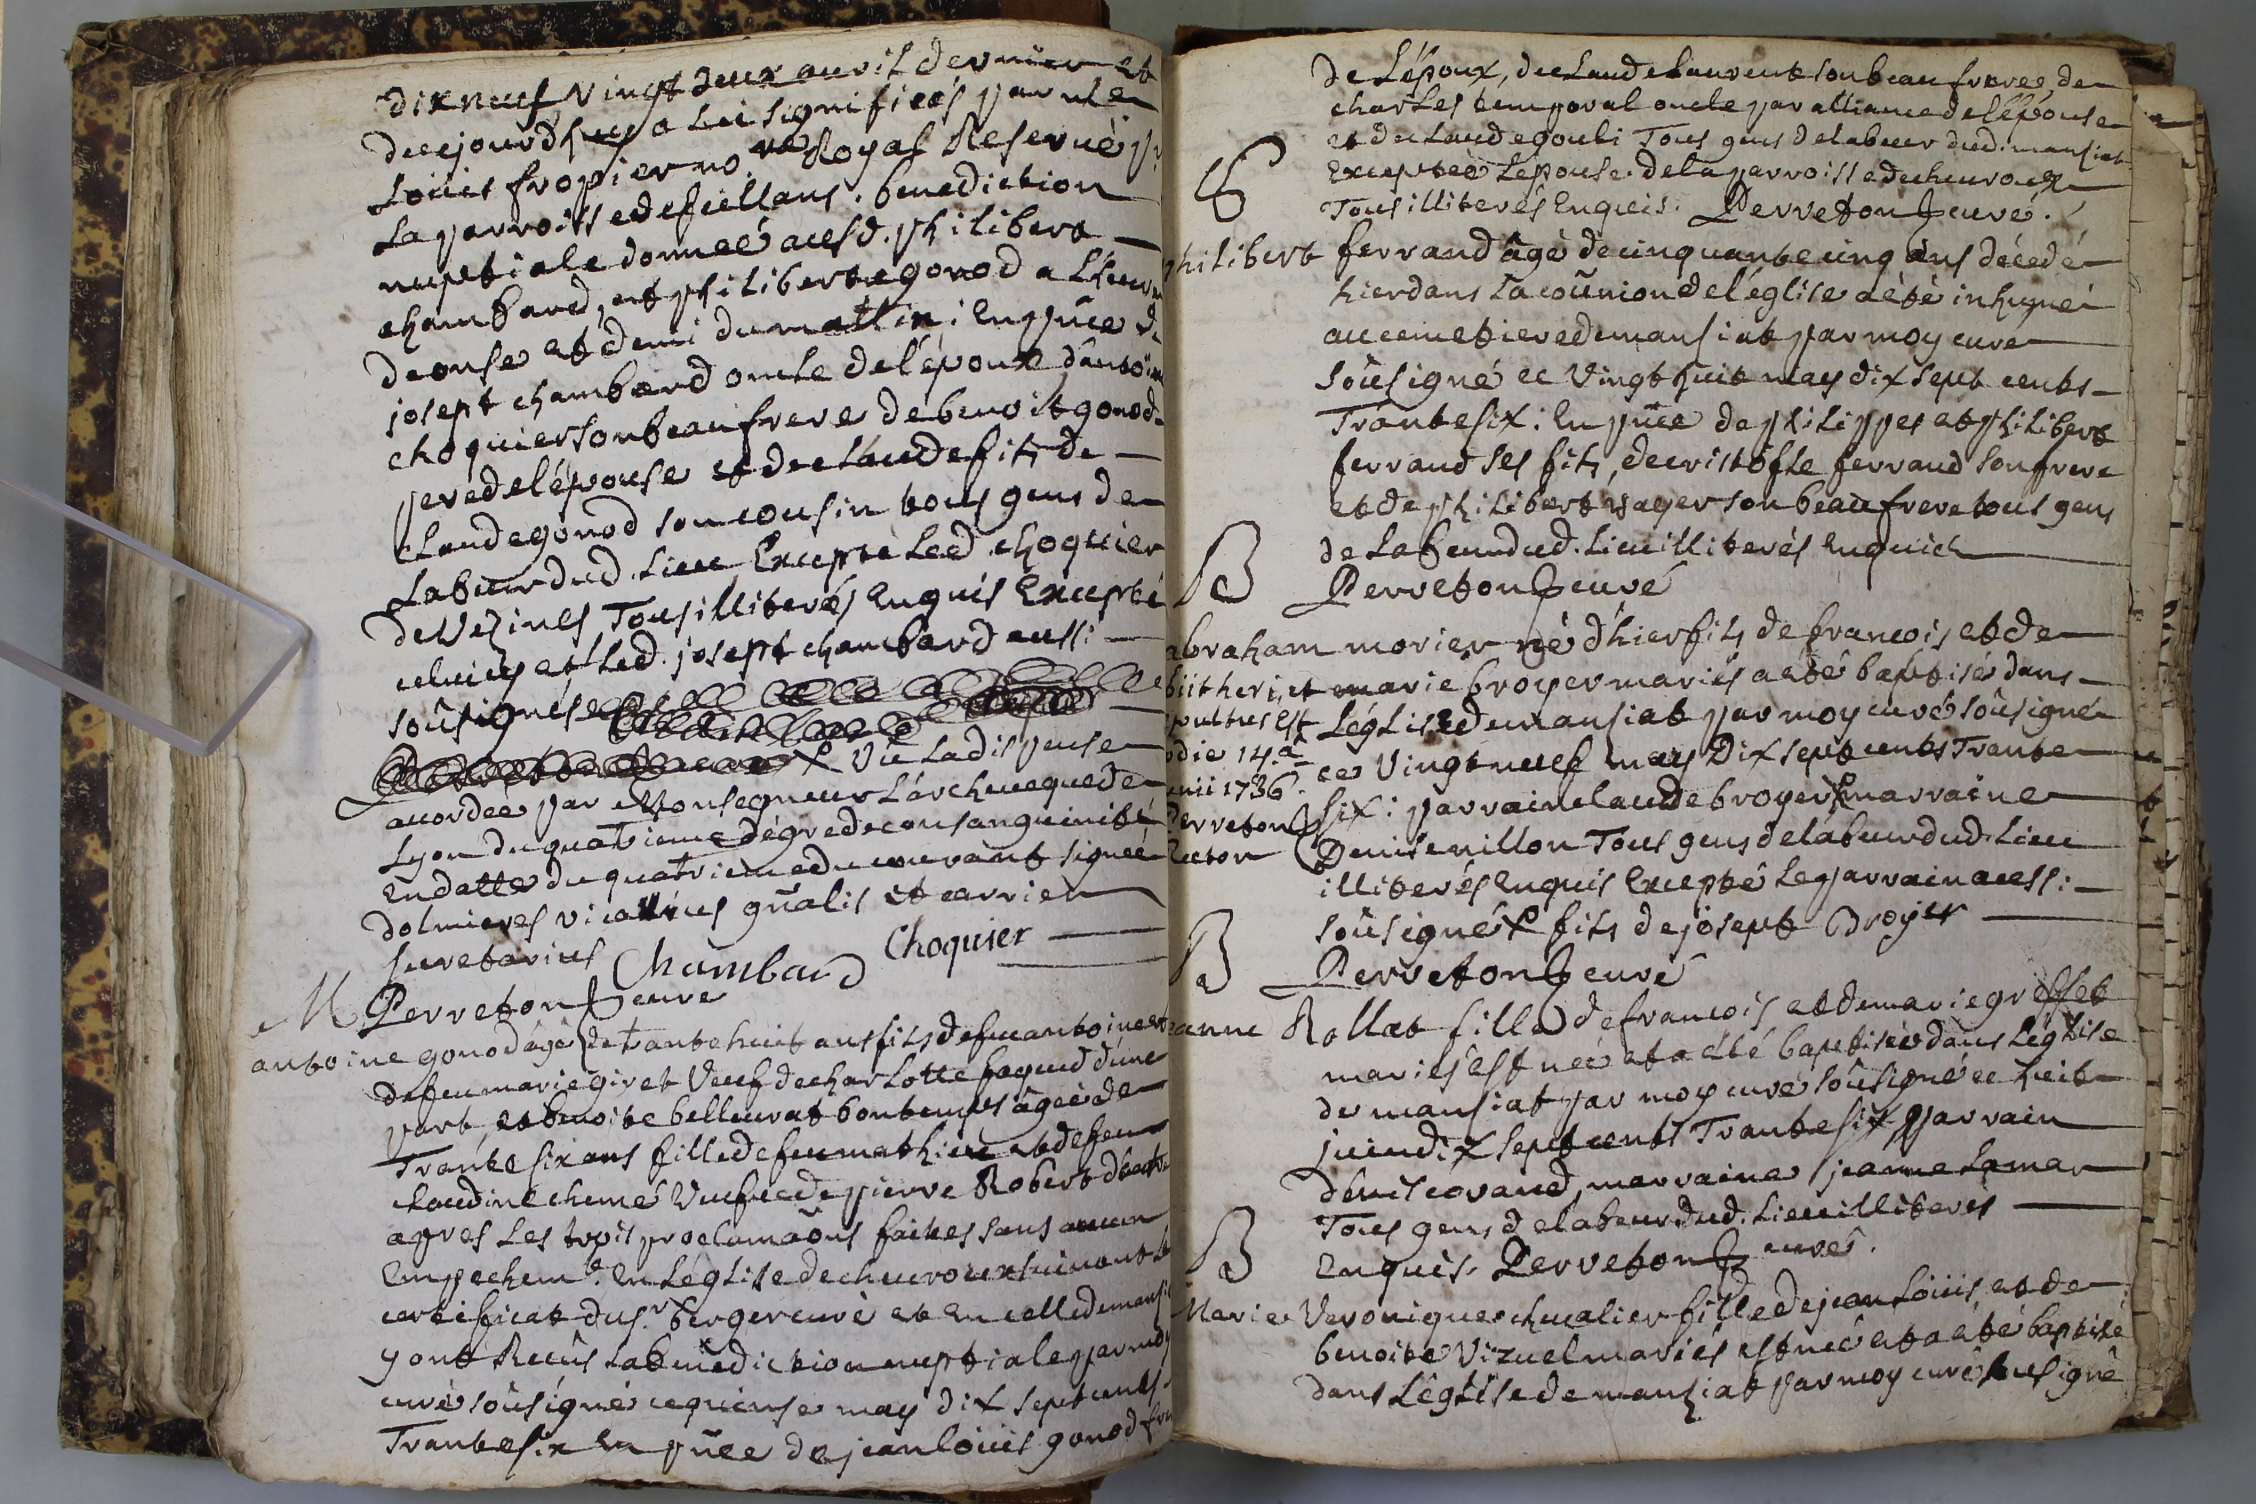 dix neuf vingt deux avril dernier et
de cejourdhuy a lui signifiées par me
Loüis fropier no.re Royal Reservé pr
la parroisse de fiellans. benediction
nuptiale donneé auxd. philibert
chambard, et philiberte gonod a l'heure
de onse et demi du mattin: En pñce de
josept chambard oncle de l'époux d'antoine
choquier son beau frere de benoit gonod
pere de l'épouse et de claude fils de
claude gonod son cousin tous gens de
labeur dud. lieu Excepté led. choquier
de Vezines Tous illiterés Enquis Excepté
celuicy et led. josept chambard aussi
soûsignés
X Vû la dispense
accordee par Monsegneur l'archeveque de
Lyon du quatrieme dégré de consanguinité
En datte du quatrieme du courant signeé
dolmieres vicarius gñalis et carrier
secretarius Chambard Choquier
M Perreton curé
antoine gonod âgé de trante huit ans fils de feu antoine et
de feu marie giret Veuf de charlotte faguid d'une
part, et benoite belleurat bontemps âgeé de
Trante six ans fille de feu mathieu et de feu
claudine chené Veufve de pierre Robert d'autre
apres les trois proclamaõns faites sans aucun
Empechemt. En l'église de chevroux suivant le
certificat du sr. berger curé et En celle de mansi
y ont Reçûs la bénédiction nuptiale par moy
curé soûsigné ce quinse may dix sept cents
Trante six En pñce de jean loüis gonod fre
de L'époux, de claude laurent son beau frere, de
charles temporal oncle par alliance de l'épouse
et de claude gouli Tous gens de labeur dud. mansiat
Excepteé l'épouse de la parroisse de chevroux
Tous illiterés Enquis. Perreton curé.
philibert ferrand âgé de cinquante cinq ans décedé
hier dans la coũnion de l'église a été inhumé
au cemetiere de mansiat par moy curé
soûsigné ce Vingt huit may dix sept cents
Trante six: En pñce de philippes et philibert
ferrand ses fils, de cristofle ferrand son frere
et de philibert son beau frere tous gens
de labeur dud. lieu illiterés Enquis
B Perreton curé
abraham morier né d'hier fils de francois et de
marie broyer mariés a eté baptisé dans
L'église de mansiat par moy curé soûsigné
ce Vingt neuf may Dix sept cents Trante
six: parrain claude broyer X marraine
Denise nillon Tous gens de labeur dud. lieu
illiterés Enquis Excepté le parrain aussi
soûsigné X fils de josept Broyer
odie 14.a
unii 1736.
Perreton
Rector
B Perreton curé
eanne Rollat fille de francois et de marie greffet
mariés est neé et a eté baptiseé dans l'église
de mansiat par moy curé soûsigné ce huit
juin dix sept cents Trante six, parrain
denis corand, marraine jeanne lamar
Tous gens de labeur dud. lieu illiterés
B Enquis. Perreton curé.
Marie Veronique chevalier fille de jean loüis et de
benoite Vizuel mariés est neé et a eté baptisé
dans l'église de manziat par moy curé sousigné